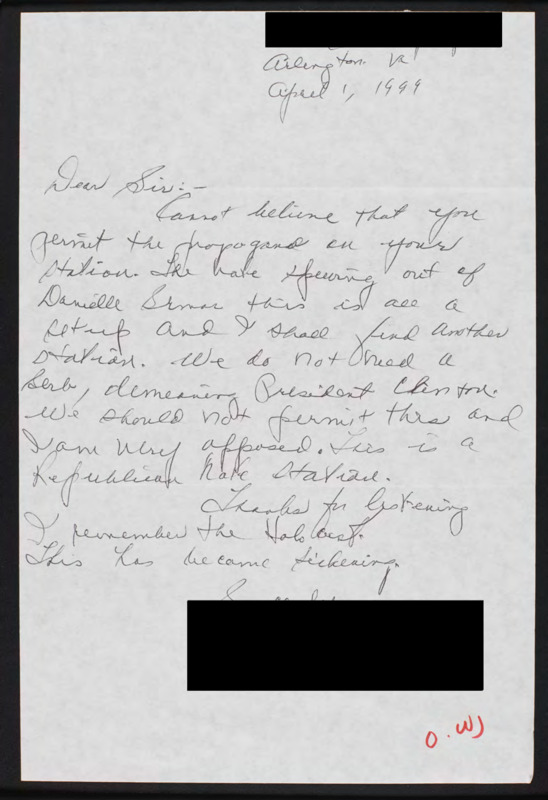 Arlington Va
April 1, 1999
Dear Sir:-
Cannot believe that you
permit the propogand on your
station. The hate spewing out of
Danielle this is all a
setup and I shall find another
station. We do not need a
Serb, demeaning President Clinton.
We should not permit this and
I am very opposed. This is a
Republican hate station.
Thanks for listening
I remember the
This has become sickening.
O.W)